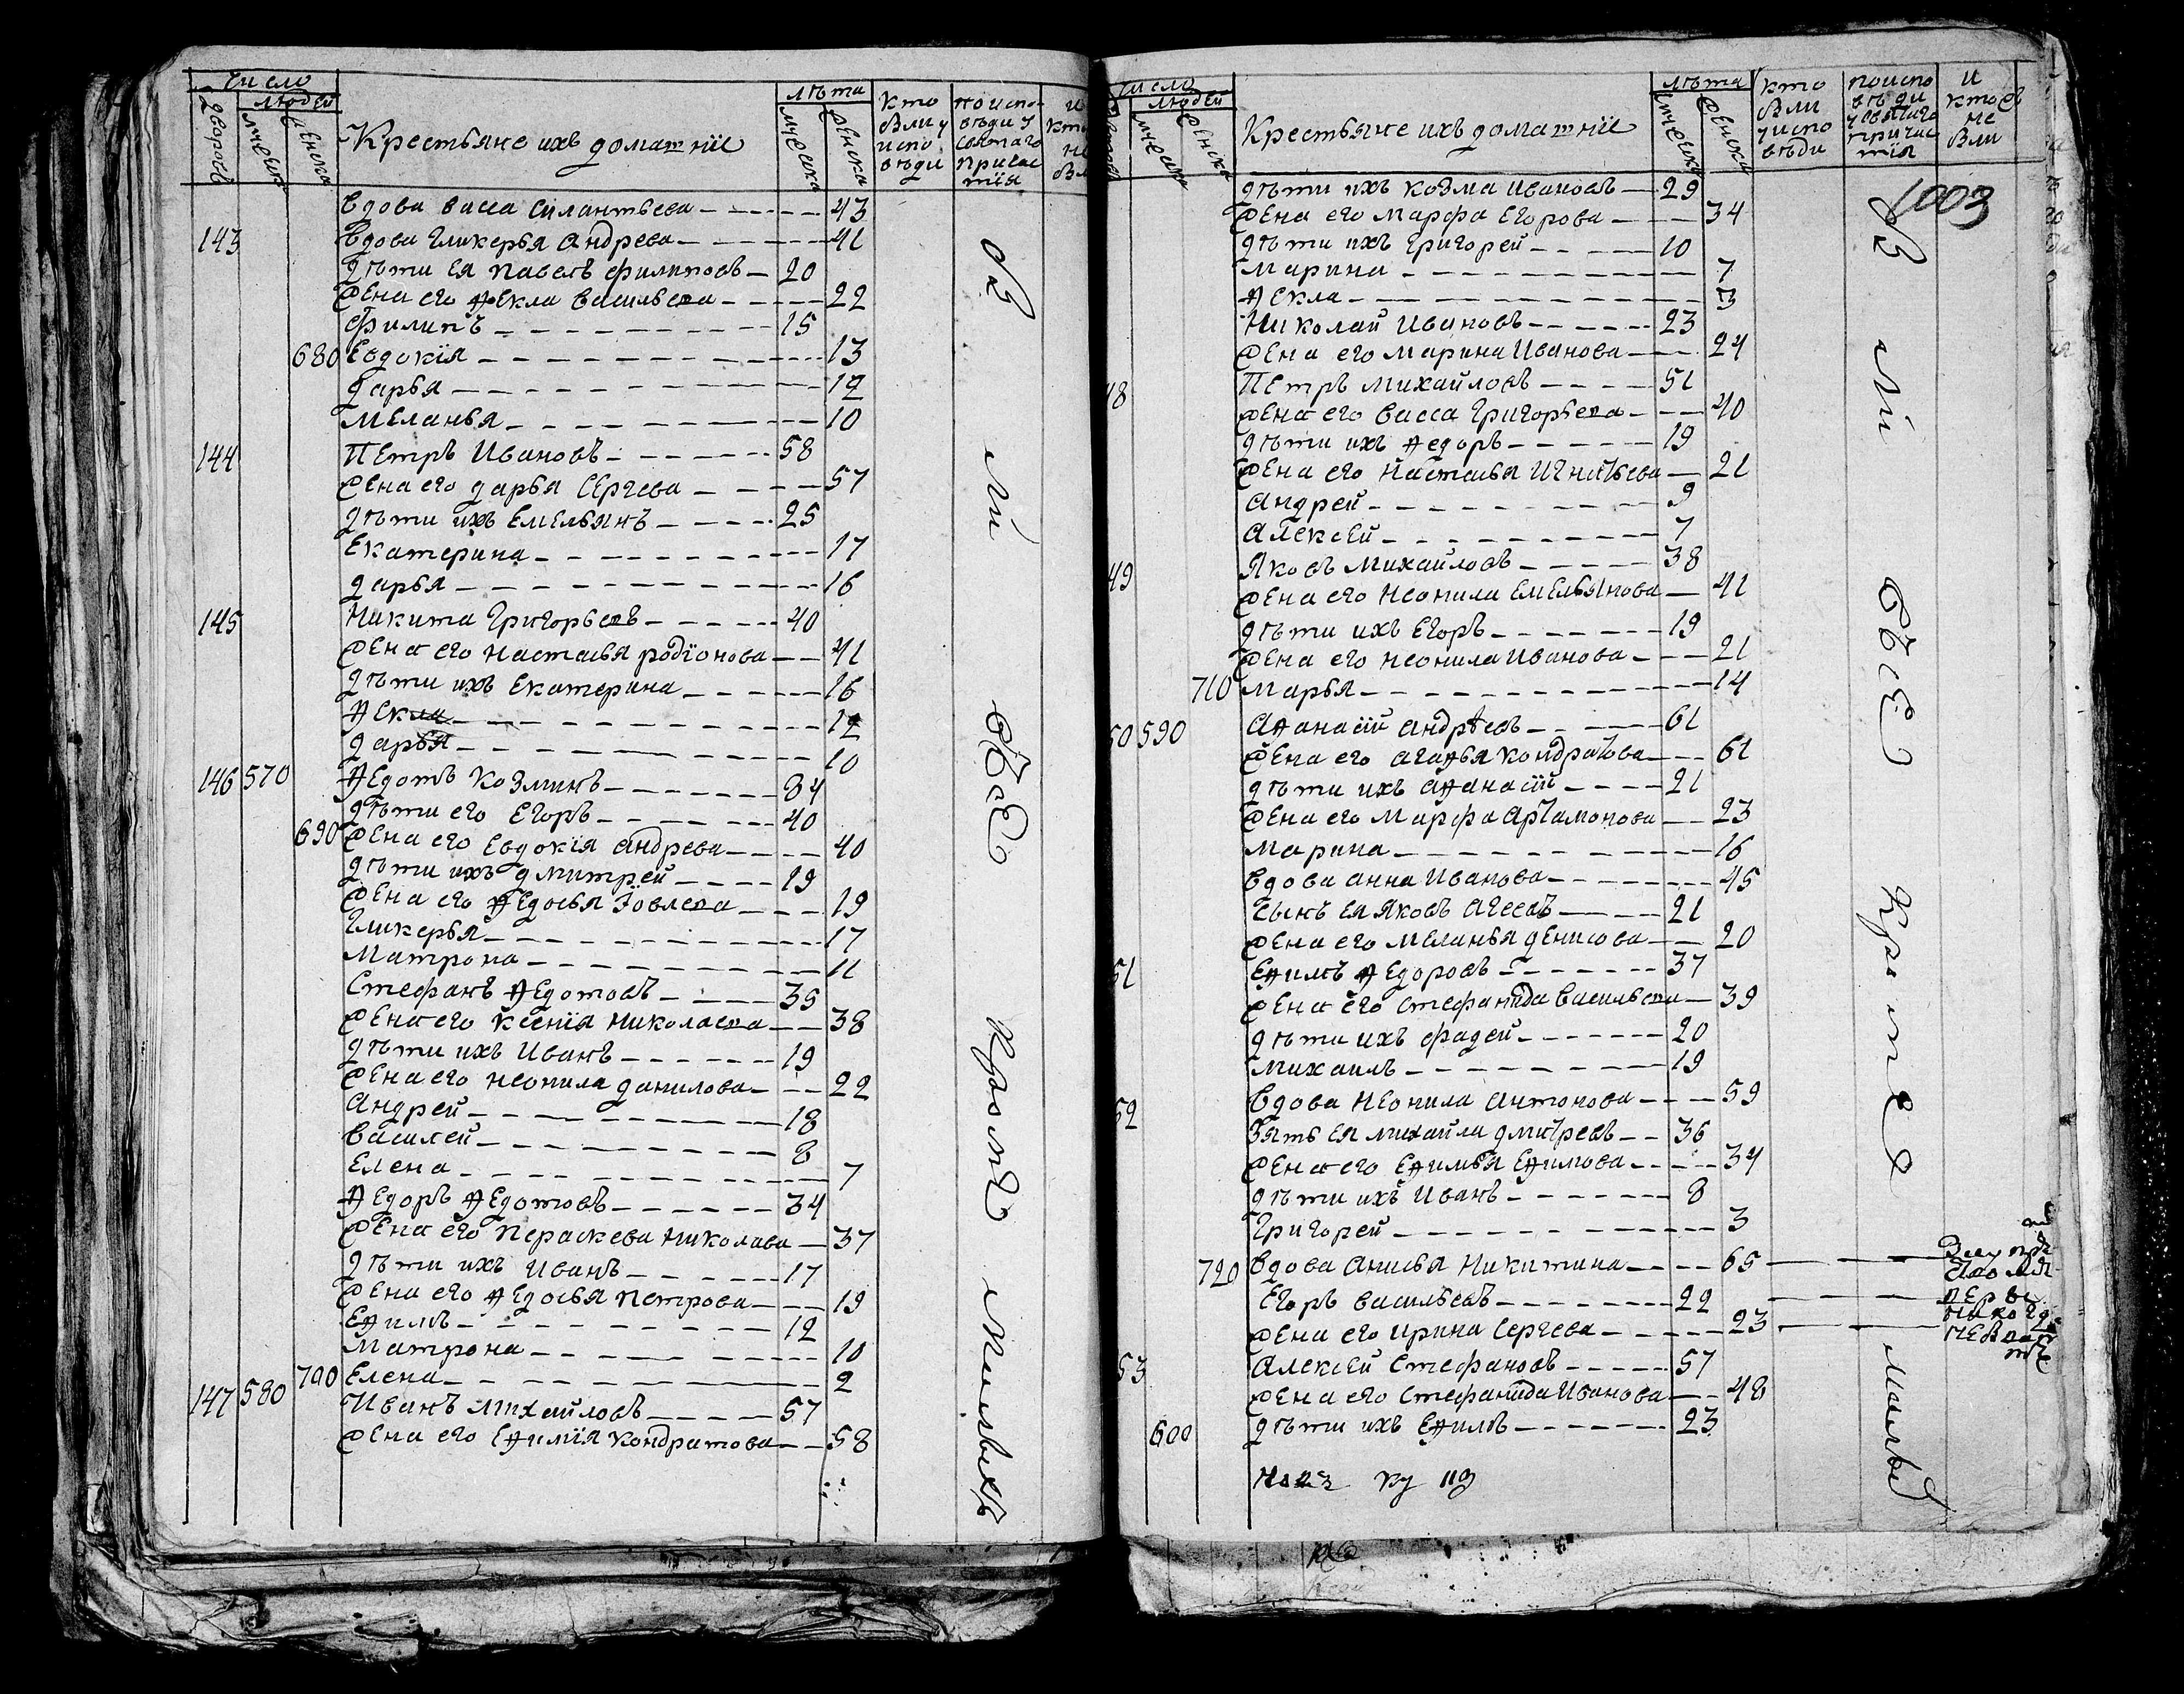 Число
Дворовъ
людей
мужеска
женска
Крестьяне ихъ домашнїе
лѣта
мужеска
женска
кто
были у
испо
вѣди
поиспо-
вѣди у
святаго
причас
тїя
Вдова васса силантьева 43
143 Вдова гликерья андрева 41
дѣти ея павелъ филиповъ 20
жена его ѳекла васильева 22
Филипъ 15
680 Евдокїя 13
дарья 12
меланья 10
144 Петръ Ивановъ 58
жена его дарья сергева 57
дѣти ихъ Емельянъ 25
Екатерина 17
дарья 16
145 Никита Григорьевъ 40
жена его настасья родїонова 41
дѣти ихъ Екатерина 16
ѳекла 12
дарья 10
146 570 ѳедотъ козминъ 84
дѣти его Егоръ 40
690 жена его Евдокїя андрева 40
дѣти ихъ дмитрей 19
жена его ѳедосья Іовлева 19
Гликерья 17
Матрона 11
Стефанъ ѳедотовъ 35
жена его ксенїя николаева 38
дѣти ихъ Иванъ 19
жена его неонила данилова 22
Андрей 18
Василей 8
Елена 7
ѳедоръ ѳедотовъ 34
жена его Пераскева николаева 37
дѣти ихъ Иванъ 17
жена его ѳедосья петрова 19
Еѳимъ 12
Матрона 10
700 Елена 2
147 580 Иванъ михайловъ 57
жена его Еѳимїя кондратова 58
число
людей
мужеска
женска
Крестьяне ихъ домашнїе
лѣта
мужеска
женска
кто
были
у испо
вѣди
поиспо
вѣди
у святаго
причас
тїя
и
кто
не
были
1003
дѣти ихъ козма ивановъ 29
жена его марфа Егорова 34
дѣти ихъ григорей 10
марина 7
ѳекла 3
Николай Ивановъ 23
жена его марина Иванова 24
48 Петръ михайловъ 51
жена его васса григорьева 40
дѣти ихъ ѳедоръ 19
жена его настасья игнатьева 21
андрей 9
алексей 7
49 яковъ михайловъ 38
жена его неонила емельянова 41
дѣти ихъ Егоръ 19
жена его неонила Иванова 21
710 марья 14
50 590 аѳанасїй андрѣевъ 61
жена его агаѳья кондратова 61
дѣти ихъ аѳанасїй 21
жена его марфа артамонова 23
марина 16
вдова анна Иванова 45
сынъ ея яковъ агеевъ 21
жена его меланья денисова 20
51 Еѳимъ ѳедоровъ 37
жена его стефанида васильева 39
дѣти ихъ фадей 20
михаилъ 19
52 вдова неонила антонова 59
зять ея михайла дмитревъ 36
жена его Еѳимья Еѳимова 34
дѣти ихъ Иванъ 8
григорей 3
720 вдова анисья никитина 65
Егоръ васильевъ 22
жена его ирина сергева 23
53 алексей стефановъ 57
жена его стефанида Иванова 48
600 дѣти ихъ Еѳимъ 23